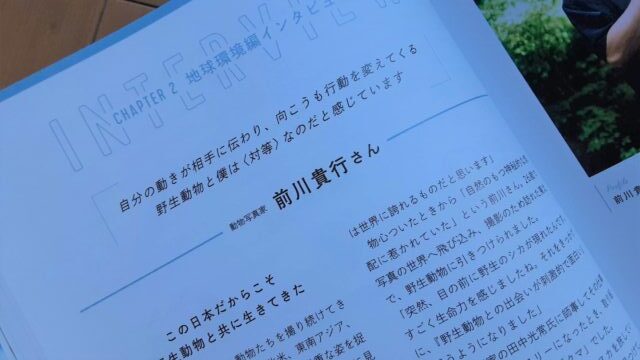 INTERVIEW
CHAPTER 2 地球環境編インタビュー
「自分の動きが相手に伝わり、向こうも行動を変えてくる
野生動物と僕は〈対等〉なのだと感じています
動物写真家 前川貴行さん
この日本だからこそ
生動物と共に生きてきた
動物たちを撮り続けてき
北米、東南アジア、
な姿を捉
は世界に誇れるものだと思います」
物心ついたときから「自然のもつ神秘的な
配に惹かれていた」という前川さん。26歳で
写真の世界へ飛び込み、撮影のため訪れた
で、野生動物に引きつけられました。
「突然、目の前に野生のシカが現れたんです
すごく生命力を感じましたね。それをきっか
に、『野生動物との出会いが刺激的で面白い
ようになりました」
家の田中光常氏に師事してその
になったとき、
Profile
前川